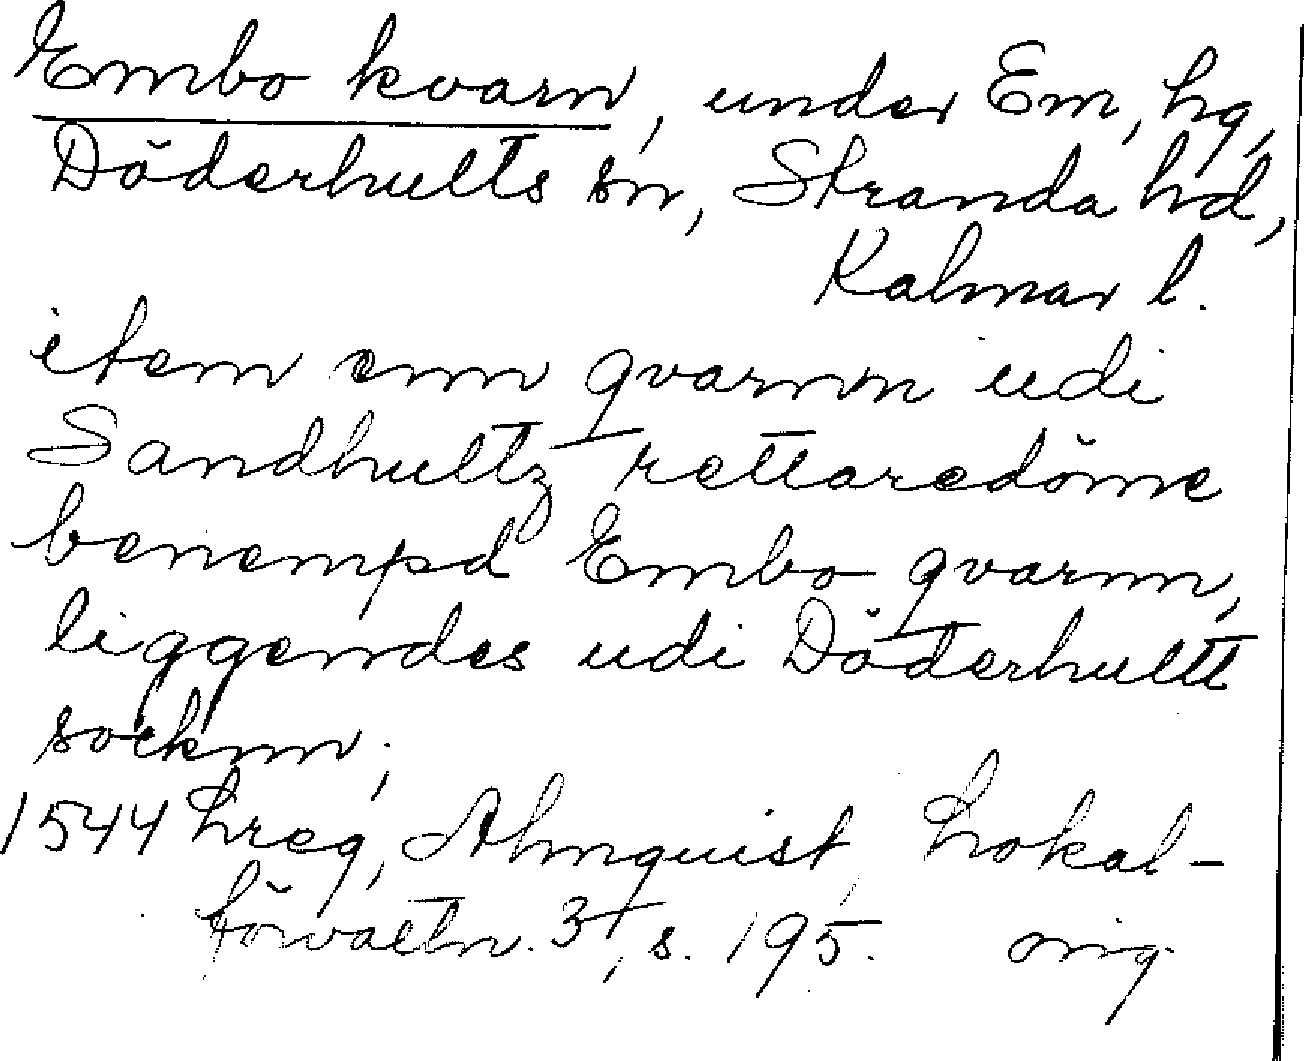 Embo kvarn, under Em, hg,
Döderhults sn, Stranda hd,
Kalmar l.
item enn qvarnn udi
Sandhultz rettaredöme
benempd Embo qvarnn,
liggendes udi Döderhullt
socknn;
1544 hreg, Almquist, Lokal-
förvaltn. 3, s. 195. orig